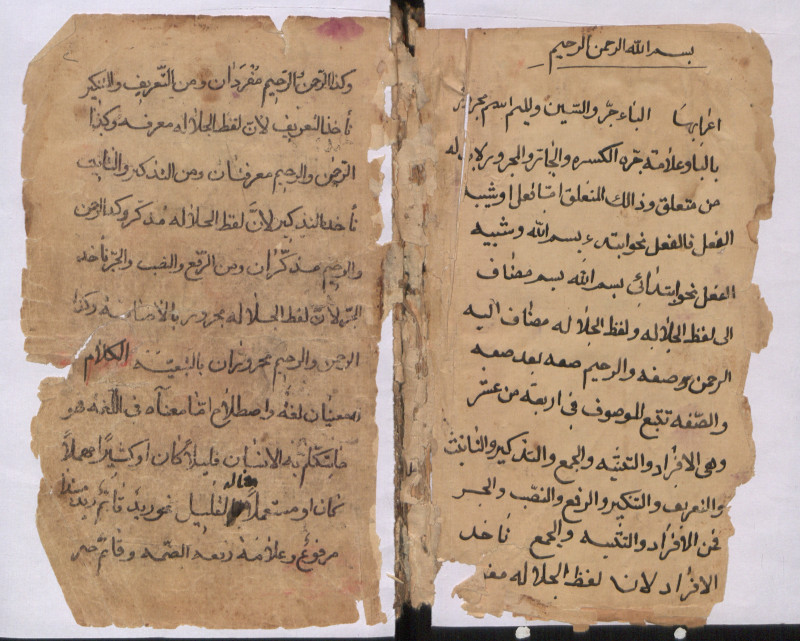 بسم الله الرحمن الرحيم
اعرابها الباء جر والسين والميم اسم مجرور
بالبا وعلامة جره الكسره والجار والمجرور لابد له
من متعلق وذالك المتعلق امّا فعل او شبيه
الفعل فالفعل نحو ابتدء بسم الله وشبيه
الفعل نحو ابتدائي بسم الله بسم مضاف
الى لفظ الجلاله ولفظ الجلاله مضاف اليه
الرحمن صفه والرحيم صفه بعد صفه
والصّفه تتبع للموصوف في اربعة من عشر
وهي الافراد والتثنيه والجمع والتذكير والتانيث
والتعريف والتنكير والرفع والنصب والجر
فمن الافراد والتثنيه والجمع ناخذ
الافراد لان لفظ الجلاله
وكذا الرحمن والرحيم مفردان ومن التّعريف والتنكير
ناخذ التعريف لان لفظ الجلاله معرفه وكذا
الرحمن والرحيم معرفتان ومن التذكير والتانيث
ناخذ التذكير لانّ لفظ الجلاله مذكر وكذا الرحمن
والرحيم مذكّران ومن الرّفع والنصب والجرّ ناخذ
الجرّ لانّ لفظ الجلاله مجرور بالاضافه وكذا
الرحمن والرحيم مجروران بالتبعيّه الكلام
معنيان لغة واصطلاح امّا معناه في اللّغه هو
ما يتكلّم به الانسان قليلا كان او كثيرًا مهملاً
كان او مستعملاً مثال القليل نحو زيد قائم زيد مبتدا
مرفوع وعلامة رفعه الضمه وقائم خبر